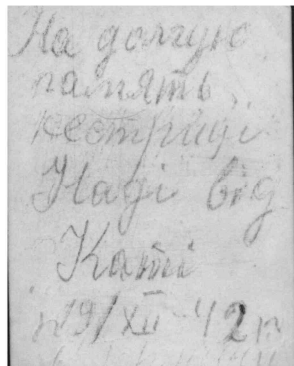 На долгую
память
сестриці
Наді від
Каті
19/XII-42р